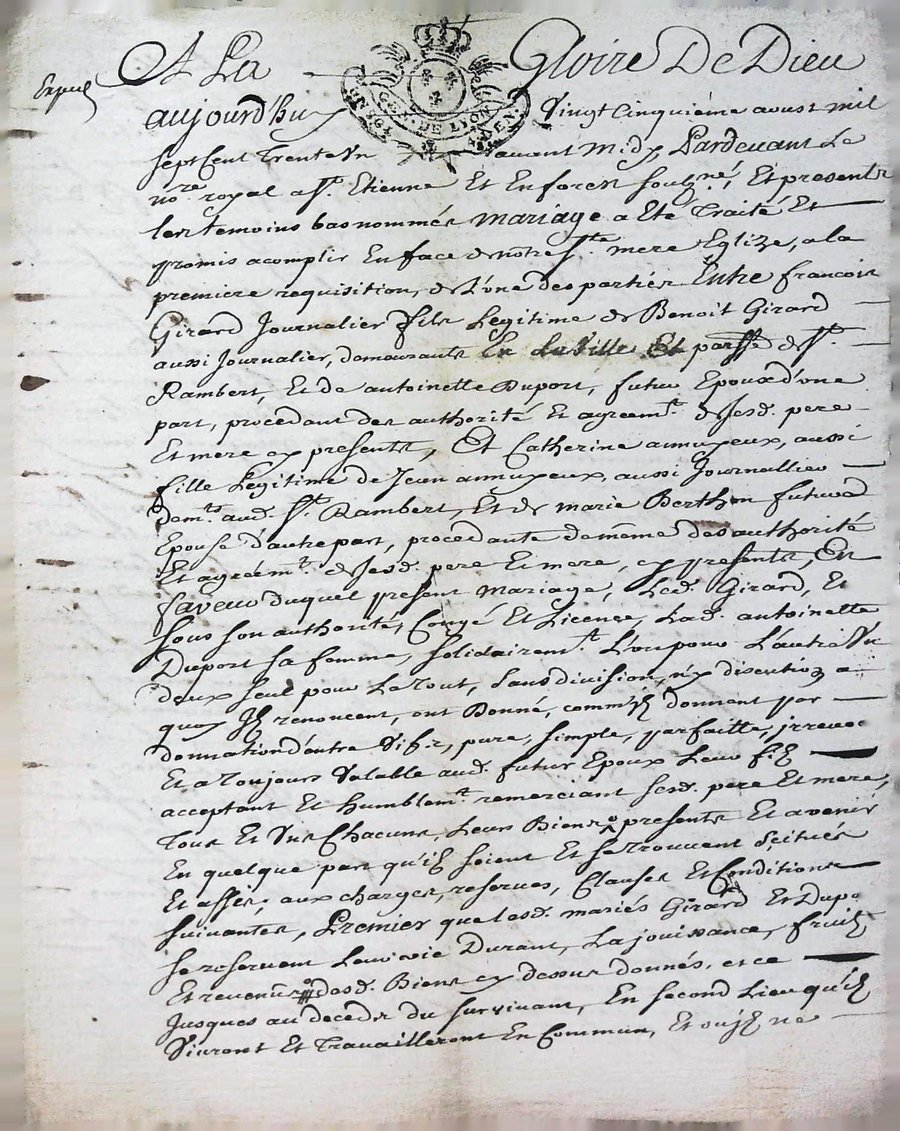 A La Gloire De Dieu
Expedié
aujourd'huy Vingt Cinquiéme aoust mil
GEN. DE LYON
sept Cent Trente Un avant midy, Pardevant Le
no.re royal a S.t Etienne Et En forest soubz.né, Et presents
les temoins bas nommés mariage a Eté Traité Et
promis acomplir En face de notre S.te mere Eglize, a la
premiere requisition, de L'une des parties Entre françois
Girard Journalier fils Legitime de Benoit Girard
aussi Journalier, demeurants En La Ville Et parsse de S.t
Rambert, Et de antoinette Duport, futur Epoux d'une
part, procédant des authorité Et agréem.t de sesd. pere
Et mere cy presents, Et Catherine annuyeux, aussi
fille Legitime de Jean annuyeux, aussi Journallier
dem.t aud. S.t Rambert, Et de marie Berthon future
Epouse d'autre part, procédante de même des authorité
Et agréem.t de sesd. pere Et mere, cy presents, En
faveur duquel present mariage, Led. Girard, Et
sous son authorité, Congé Et Licence, Lad. antoinette
Duport sa femme, solidairem.t L'un pour L'autre Un
deux seul pour Le Tout, sans division, ny discution a
quoy Ils renoncent, ont Donné, comm'ils donnent par
donnation d'entre Vifs, pure, simple, parfaitte, irrevoc
Et a Toujours Valable aud. futur Epoux Leur fils
acceptant Et humblem.t remerciant sesd. pere Et mere,
Tous Et Uns Chacuns, Leurs Biens presents Et avenir
En quelque part qu'ils soient Et se Trouvent Scitués
Et assis, aux charges, reserves, Clauses Et Conditions
suivantes, Premier que lesd. mariés Girard Et Dupo
se reservent Leur vie Durant, La jouissance, fruits
Et revenus desd. Biens cy dessus donnés, et ce
Jusques au deceds du survivant, En second Lieu qu'ils
Vivront Et Travailleront En Commun, Et ou Ils ne